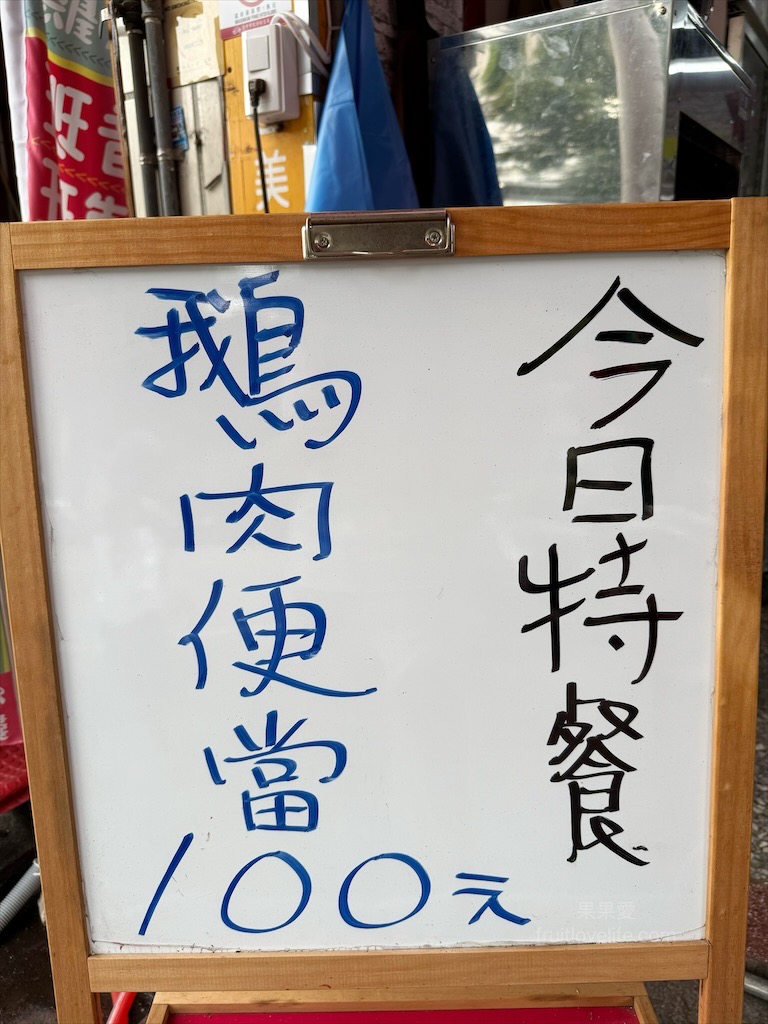 今日特餐
鵝肉便當
100元
美
果果愛
fruitlovelife.com